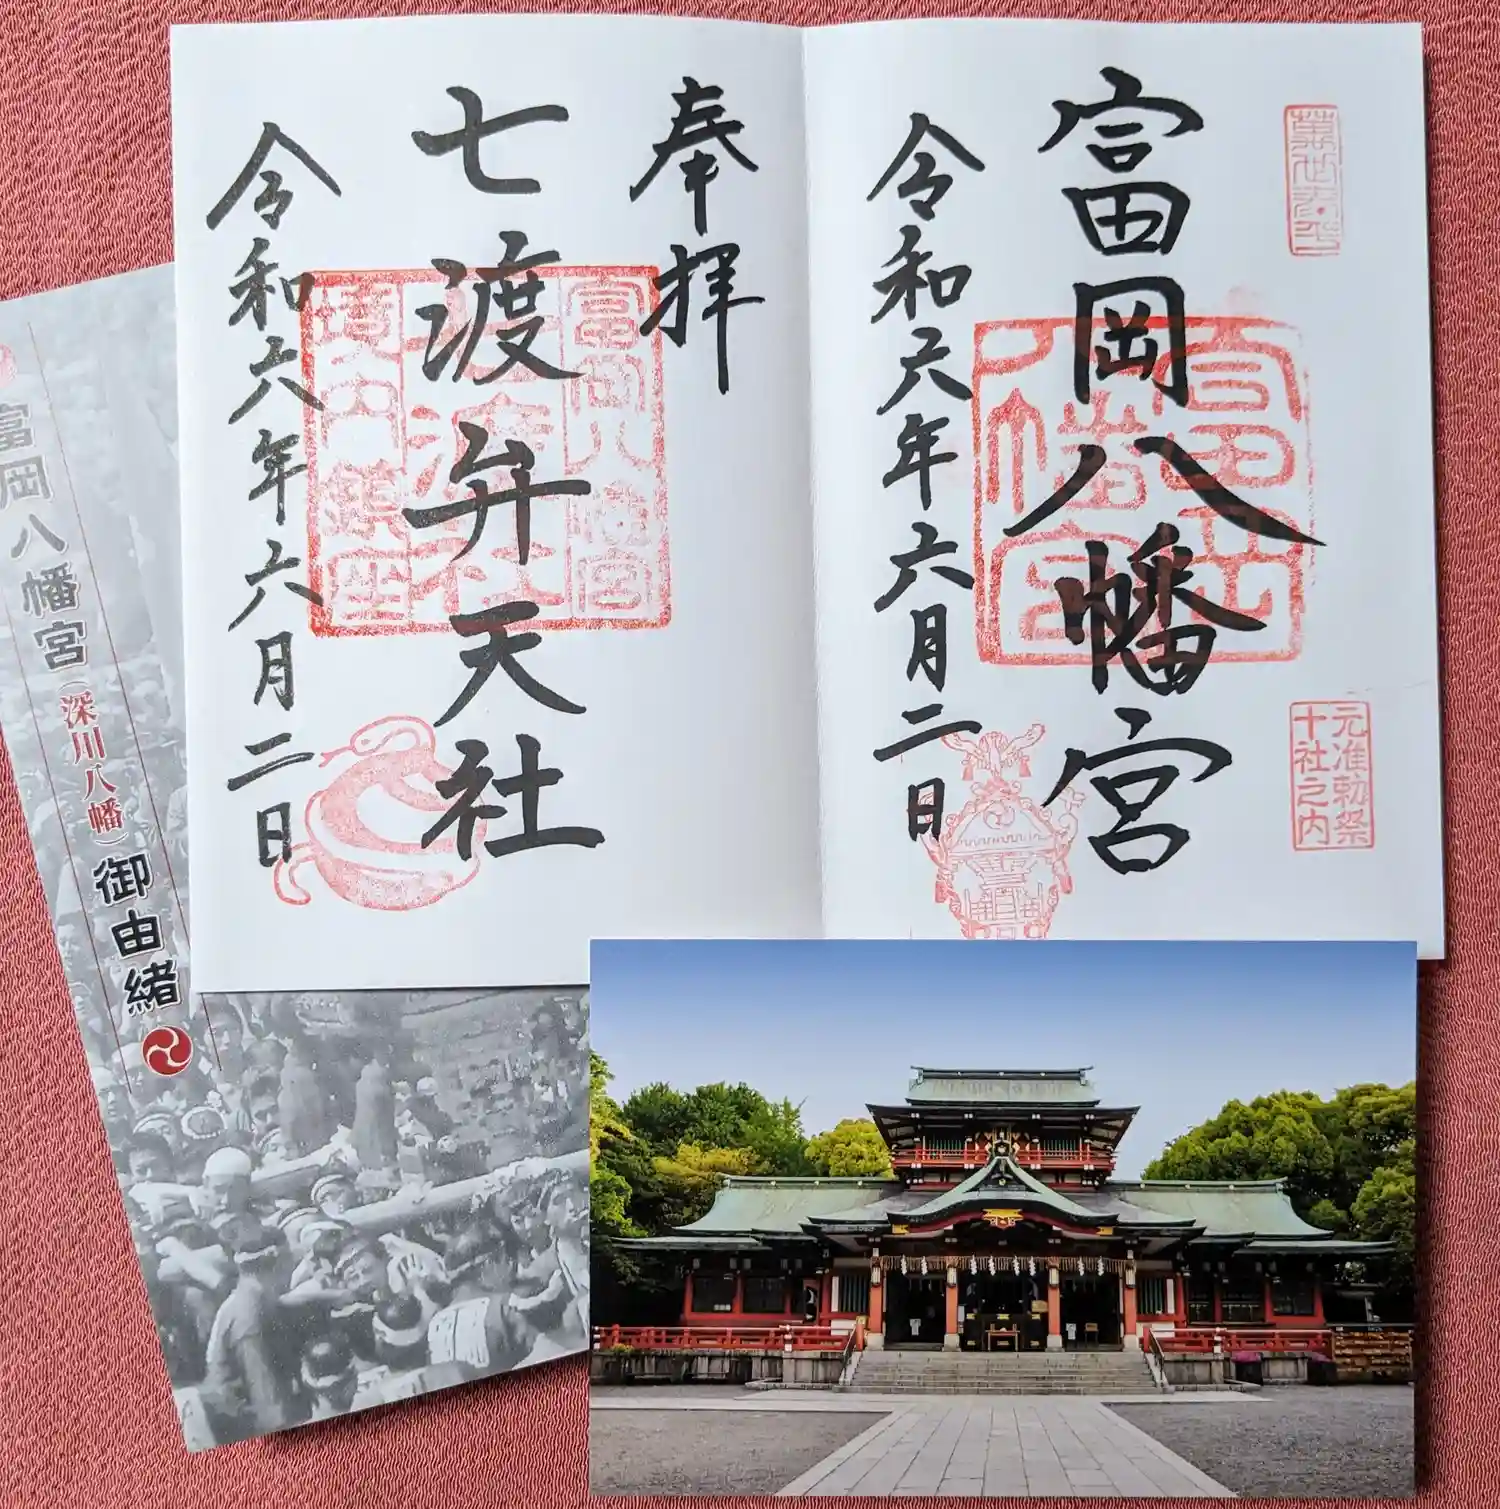 富岡八幡宮
令和六年六月二日
元准勅祭
十社之内
富岡
八幡宮
奉拝
七渡弁天社
令和六年六月二日
富岡八幡宮
七渡弁天社
境内鎮座
富岡八幡宮（深川八幡）御由緒